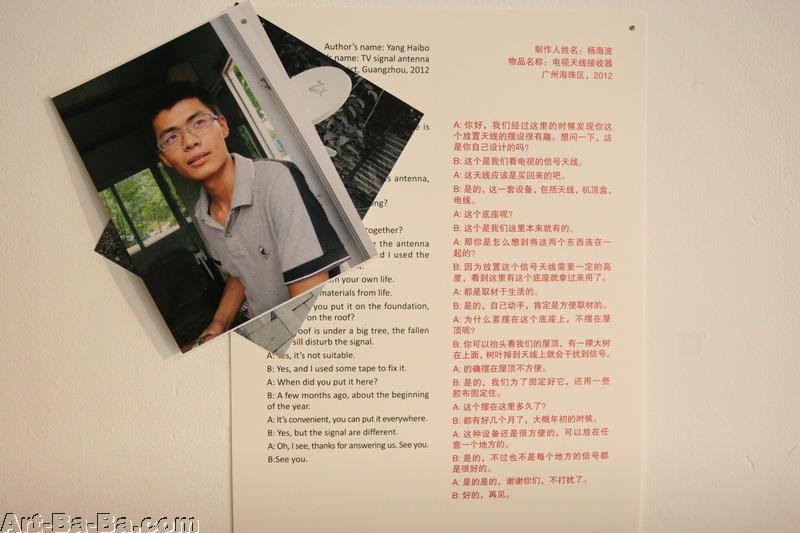 Author's name: Yang Haibo
name: TV signal antenna
Guangzhou, 2012
is
antenna,
together?
the antenna
I used the
your own life.
materials from life.
you put it on the foundation,
on the roof?
roof is under a big tree, the fallen
sill disturb the signal.
A: Yes, it's not suitable.
B: Yes, and I used some tape to fix it.
A: When did you put it here?
B: A few months ago, about the beginning
of the year.
A: It's convenient, you can put it everywhere.
B: Yes, but the signal are different.
A: Oh, I see, thanks for answering us. See you.
B:See you.
制作人姓名：杨海波
物品名称：电视天线接收器
广州海珠区，2012
A: 你好，我们经过这里的时候发现你这
个放置天线的摆设很有趣。想问一下，这
是你自己设计的吗?
B: 这个是我们看电视的信号天线。
A: 这天线应该是买回来的吧。
B: 是的，这一套设备，包括天线，机顶盒，
电线。
A: 这个底座呢?
B: 这个是我们这里本来就有的。
A: 那你是怎么想到将这两个东西连在一
起的?
B: 因为放置这个信号天线需要一定的高
度，看到这里有这个底座就拿过来用了。
A: 都是取材于生活的。
B: 是的，自己动手，肯定是方便取材的。
A: 为什么要摆在这个底座上，不摆在屋
顶呢?
B: 你可以抬头看我们的屋顶，有一棵大树
在上面，树叶掉到天线上就会干扰到信号。
A: 的确摆在屋顶不方便。
B: 是的，我们为了固定好它，还用一些
胶布固定住。
A: 这个摆在这里多久了?
B: 都有好几个月了，大概年初的时候。
A: 这种设备还是很方便的，可以放在任
意一个地方的。
B: 是的，不过也不是每个地方的信号都
是很好的。
A: 是的是的，谢谢你们，不打扰了。
B: 好的，再见。
Art-Ba-Ba.com